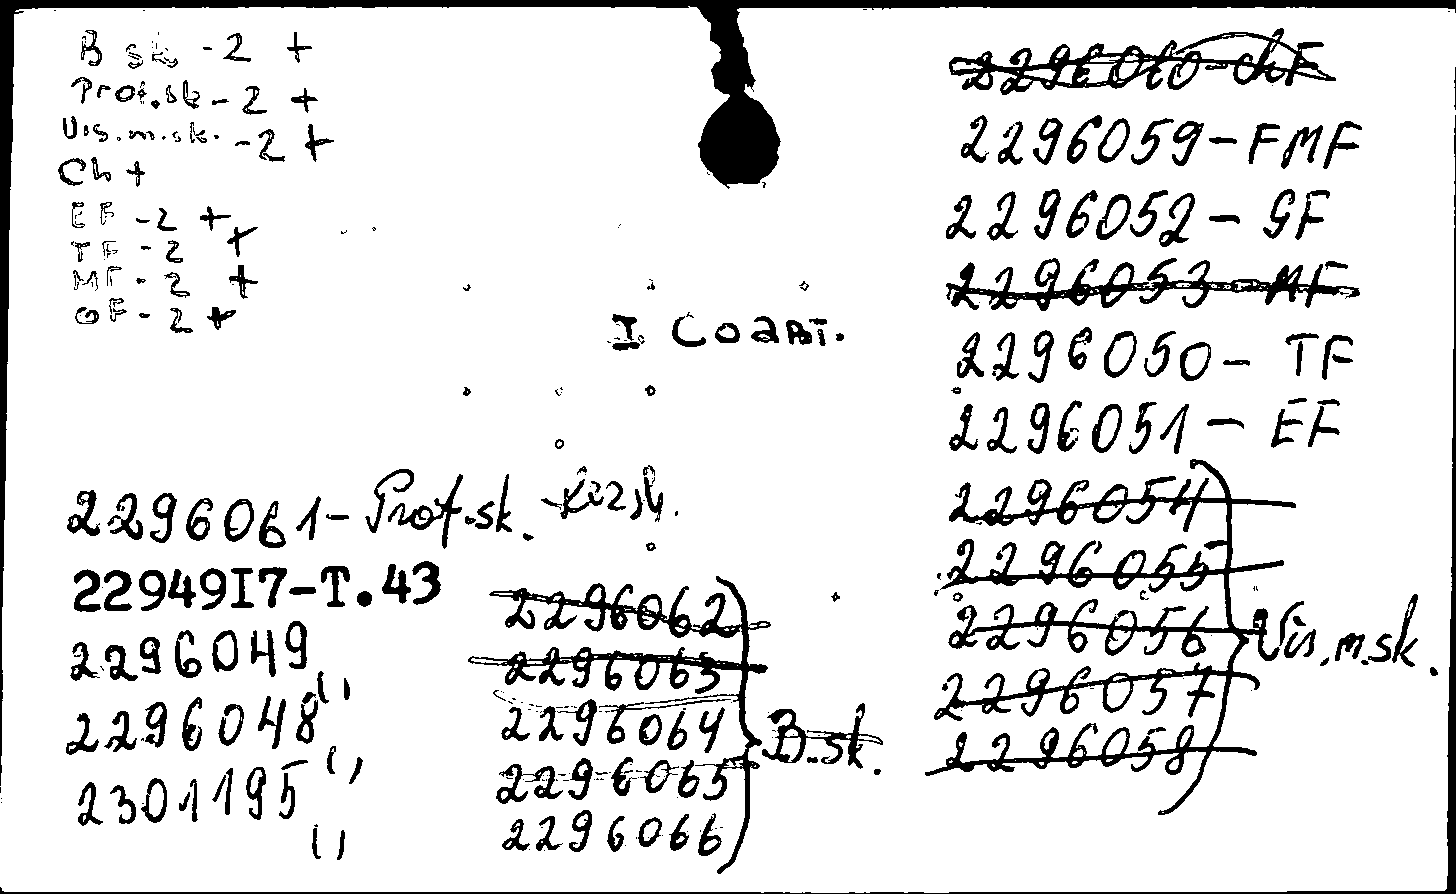 B sk - 2 +
Prof.sk - 2 +
Vis.m.sk. - 2 +
Ch +
EF - 2 +
TF - 2 +
MF - 2 +
GF - 2 +
I
2296061 - Prof.sk.
22949I7-T.43
2296049
2296048 "
2301195 "
"
2296062
2296063
2296064
2296065
2296066
B.sk.
2296060 - ChF
2296059 - FMF
2296052 - GF
2296053 - MF
2296050 - TF
2296051 - EF
2296054
2296055
2296056
2296057
2296058
Vis.m.sk.